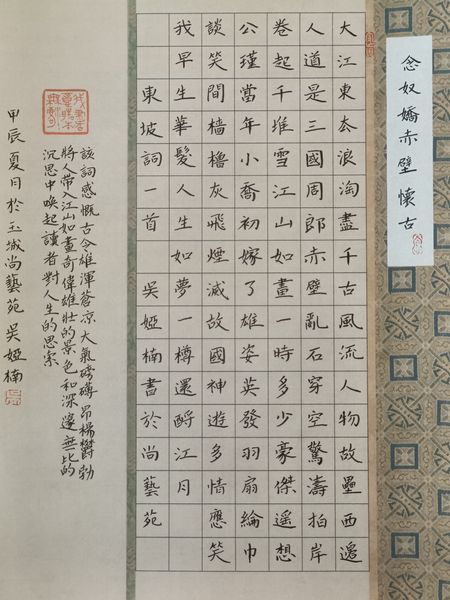 念奴嬌赤壁懷古
大江東去浪淘盡千古風流人物故壘西邊
人道是三國周郎赤壁亂石穿空驚濤拍岸
卷起千堆雪江山如畫一時多少豪傑遙想
公瑾當年小喬初嫁了雄姿英發羽扇綸巾
談笑間檣櫓灰飛煙滅故國神遊多情應笑
我早生華髮人生如夢一樽還酹江月
東坡詞一首 吳婭楠書於尚藝苑
該詞感慨古今雄渾蒼涼大氣磅礴昂揚鬱勃
將人帶入江山如畫奇偉雄壯的景色和深邃無比的
沉思中喚起讀者對人生的思索
甲辰夏月於玉城尚藝苑 吳婭楠